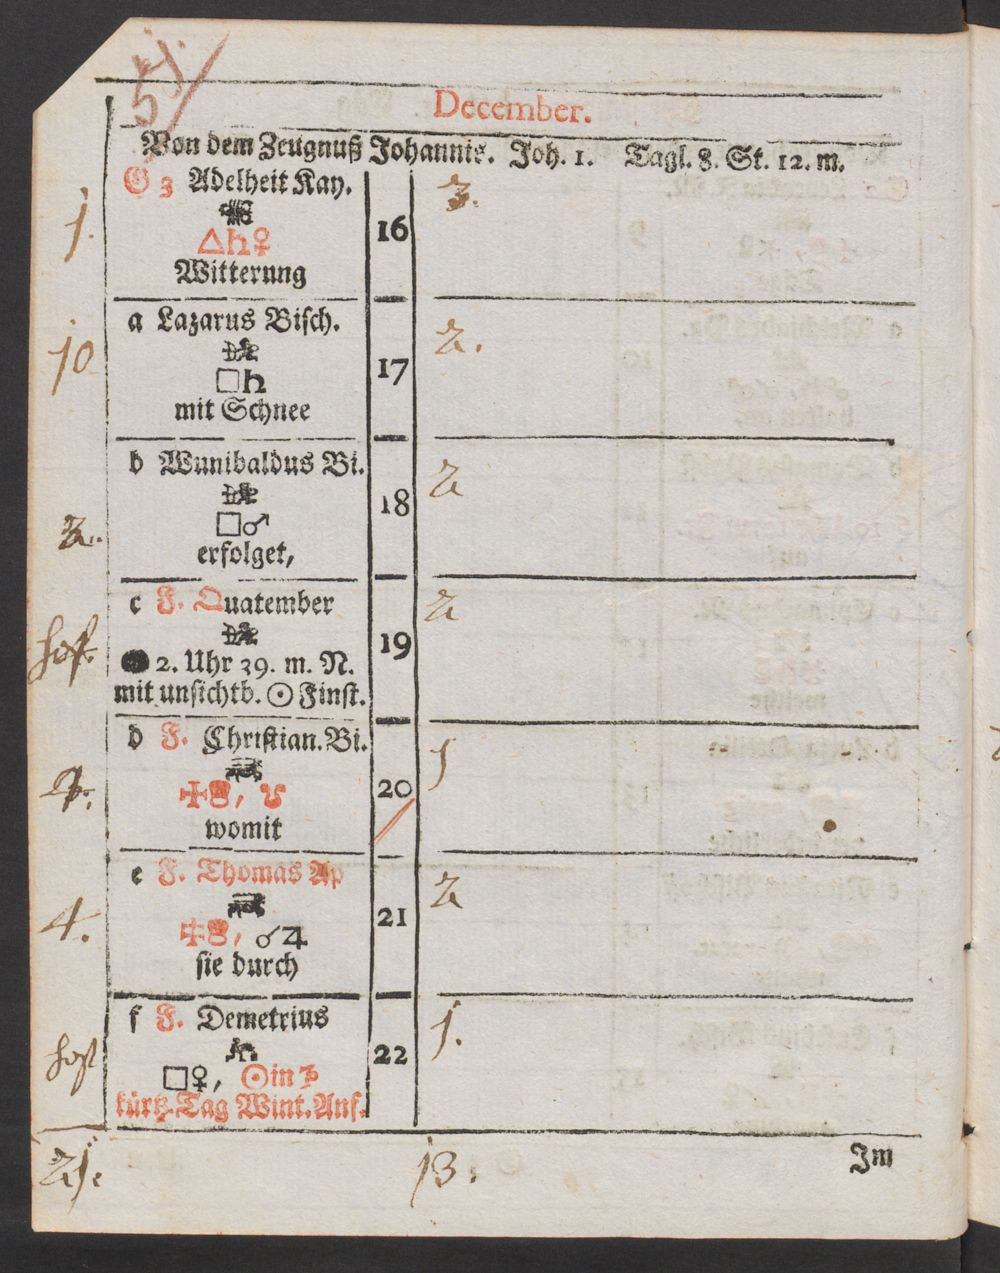 51.
December.
Von dem Zeugnuß Johannis. Joh. 1. Tagl. 8. St. 12. m.
G 3 Adelheit Kay.
△♄♀
Witterung
16
1.
3.
a Lazarus Bisch.
□♄
mit Schnee
17
10
2.
b Wunibaldus Bi.
□♂
erfolget,
18
2..
2
c F. Quatember
● 2. Uhr 39. m. N.
mit unsichtb. ☉ Finst.
19
2
d F. Christian. Bi.
womit
20
1
e F. Thomas Ap
☌♃
sie durch
21
4.
2
f F. Demetrius
□♀, ☉in♑
kürtz. Tag Wint. Anf.
22
1.
21.
13.
Im